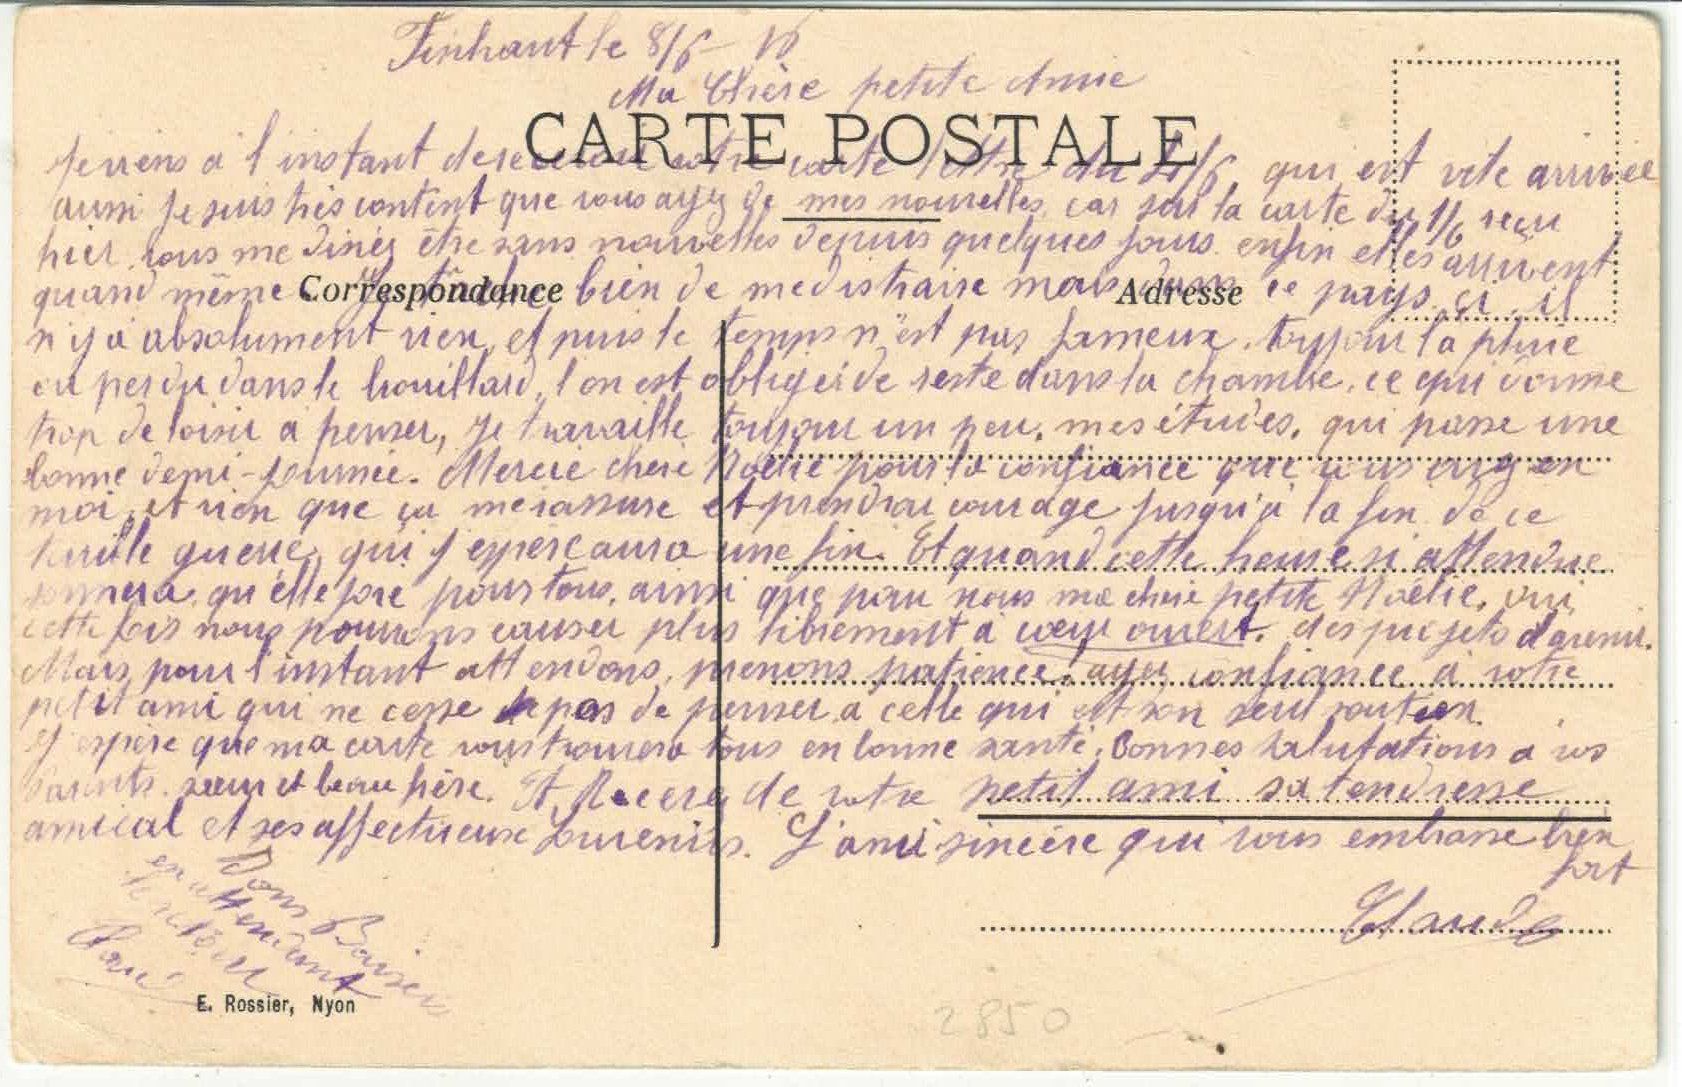 Finhaut le 8/6 - 16
Ma Chère petite Amie
CARTE POSTALE
Je viens à l'instant de recevoir votre carte lettre du 4/6 qui est vite arrivée
aussi je suis très content que vous ayez de mes nouvelles, car sur la carte du 1/6 reçu
hier vous me disiez être sans nouvelles depuis quelques jours enfin elles arrivent
quand même bien de me distraire mais dans ce pays ci il
Correspondance
Adresse
n'y a absolument rien, et puis le temps n'est pas fameux. toujour la pluie
ou perdu dans le brouillard, l'on est obligé de reste dans la chambre, ce qui donne
trop de loisir a penser, Je travaille toujour un peu, mes études, qui passe une
bonne demi-journée. Mercie chère Noélie pour la confiance que vous ayez en
moi, et rien que ça me rassure et prendrai courage jusqu'à la fin de ce
terrible guerre, qui j'espère aura une fin. Et quand cette heure si attendue
sonnera, qu'elle soie pour tous, ainsi que pour nous ma chère petite Noélie, oui
cette fois nous pourrons causer plus librement à coeur ouvert, des projets d'avenir.
Mais pour l'instant attendons, prenons patience, ayez confiance à votre
petit ami qui ne cesse pas de penser a celle qui est son seul soutien.
J'espère que ma carte vous trouvera tous en bonne santé, Bonnes salutations a vos
Parents, soeur et beau frère. Et Recevez de votre petit ami sa tendresse
amical et ses affectueux souvenirs. L'ami sincère qui vous embrasse bien
fort
Claude
Bons Baisers
en attendant
E. Rossier, Nyon
2850